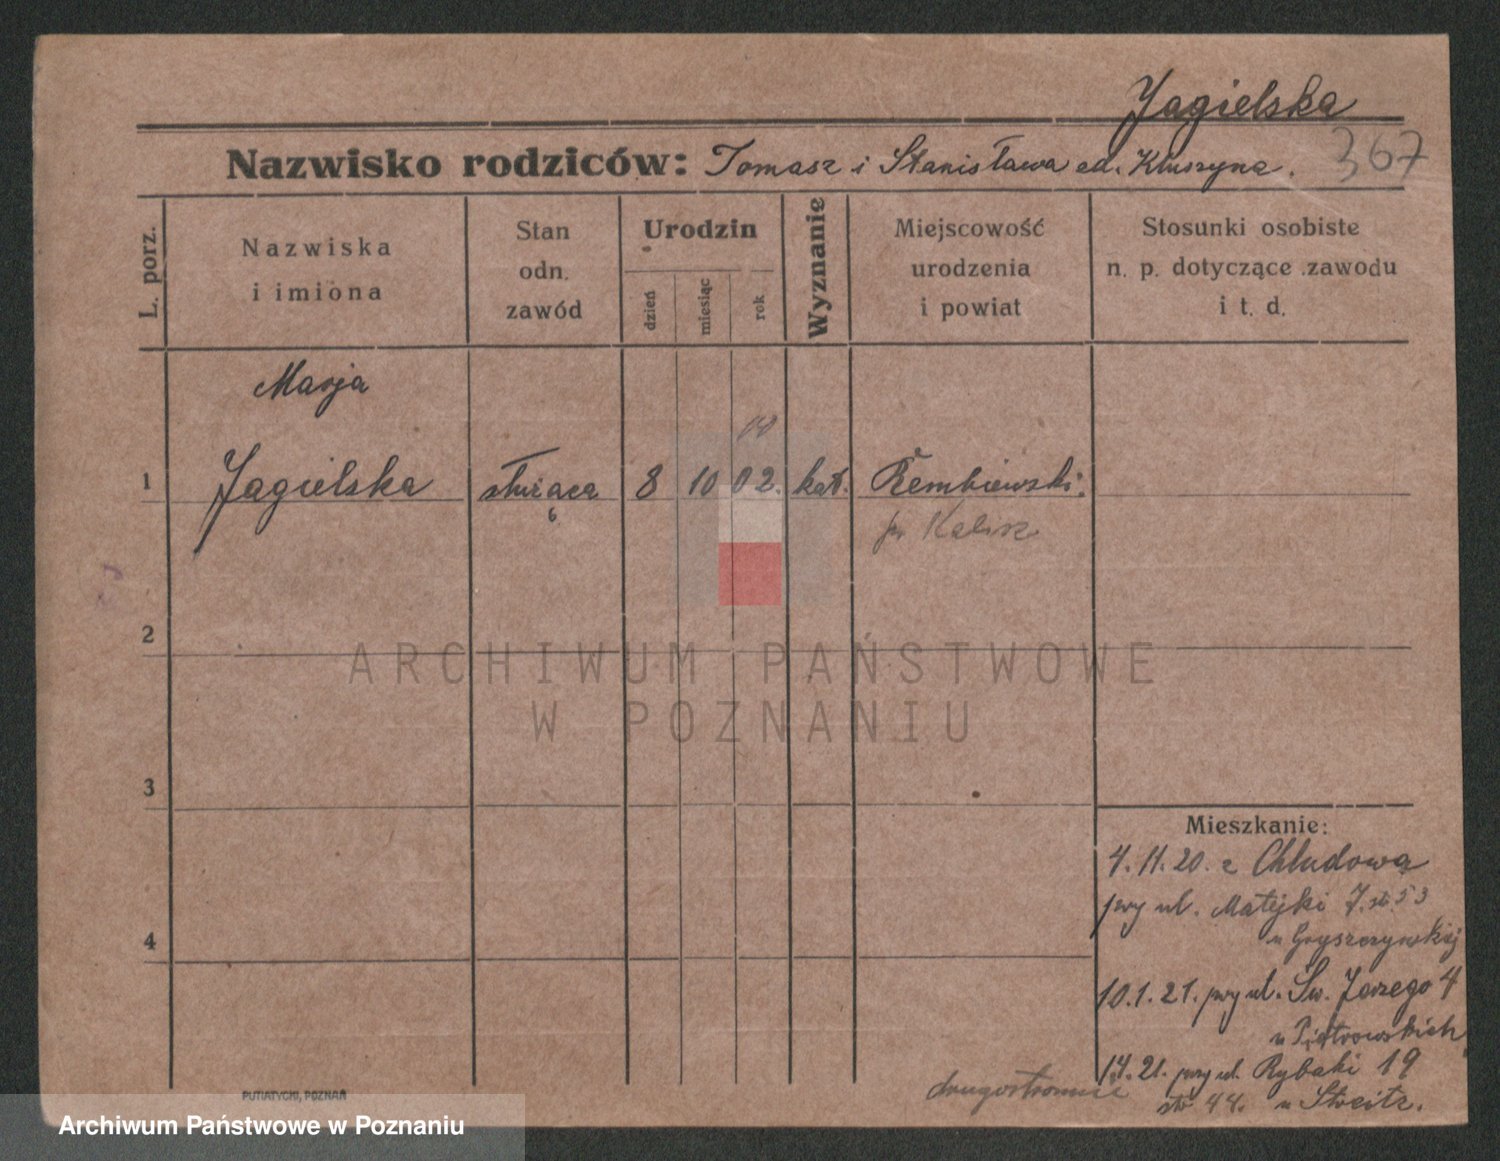 Jagielska
Nazwisko rodziców: Tomasz i Stanisława ed. Kluszyna.
367
L. porz.
Nazwiska
i imiona
Stan
odn.
zawód
Urodzin
dzień
miesiąc
rok
Wyznanie
Miejscowość
urodzenia
i powiat
Stosunki osobiste
n. p. dotyczące zawodu
i t. d.
Marja
1 Jagielska służąca 8 10 02. kat. Rembiewski.
p. Kalisz
2
ARCHIWUM PAŃSTWOWE
W POZNANIU
3
Mieszkanie:
4. 11. 20. z Chludowa
przy ul. Matejki 7. st. 53
4
u Gryszczynskiej
10. 1. 21. przy ul. Św. Jerzego 4
u Piotrowskich
21. przy ul. Rybaki 19
str 44. u Streitz.
drugostronnie
PUTIATYCKI, POZNAŃ
Archiwum Państwowe w Poznaniu